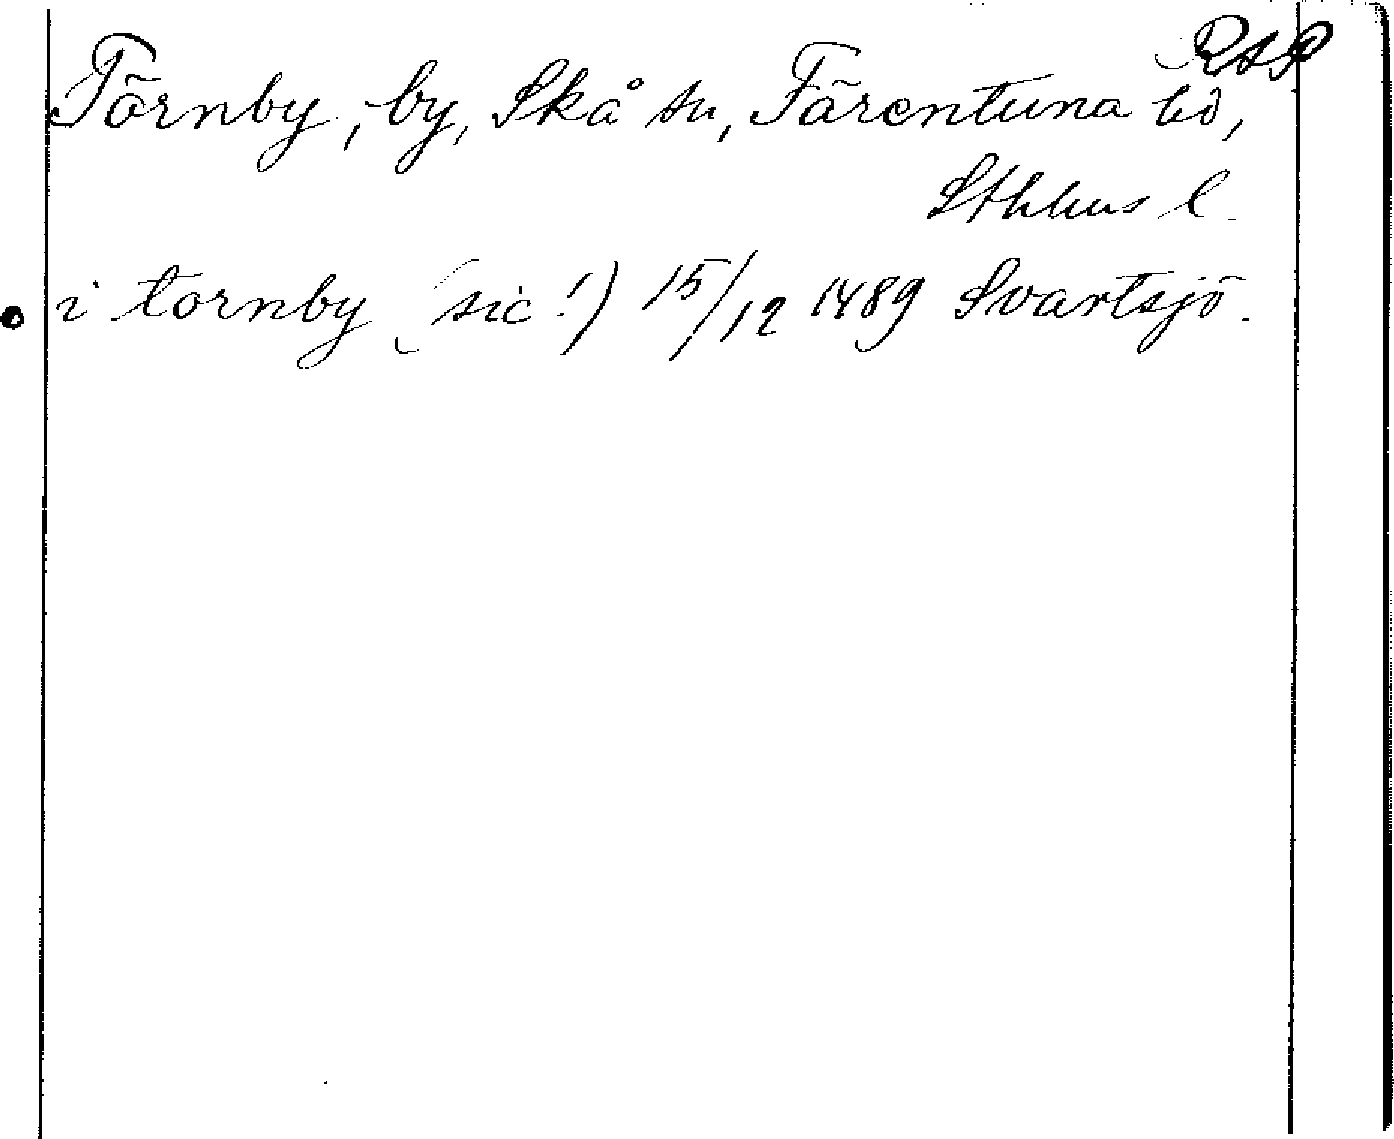 RAP
Törnby, by, Skå sn, Färentuna hd,
Sthlms l.
i tornby (sic!) 15/12 1489 Svartsjö.